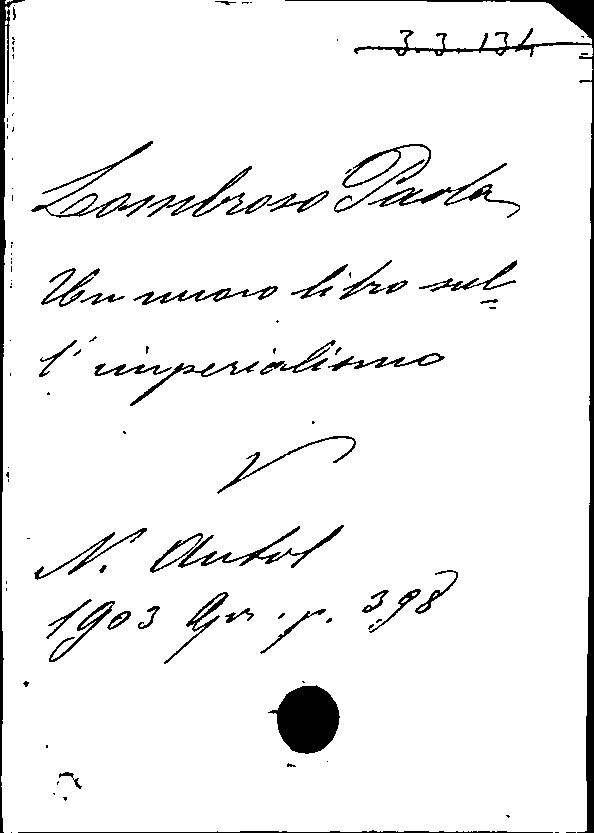 3.3.134
Lombroso Paola
Un nuovo libro sul=
l'imperialismo
N. Antol
1903 p. 398